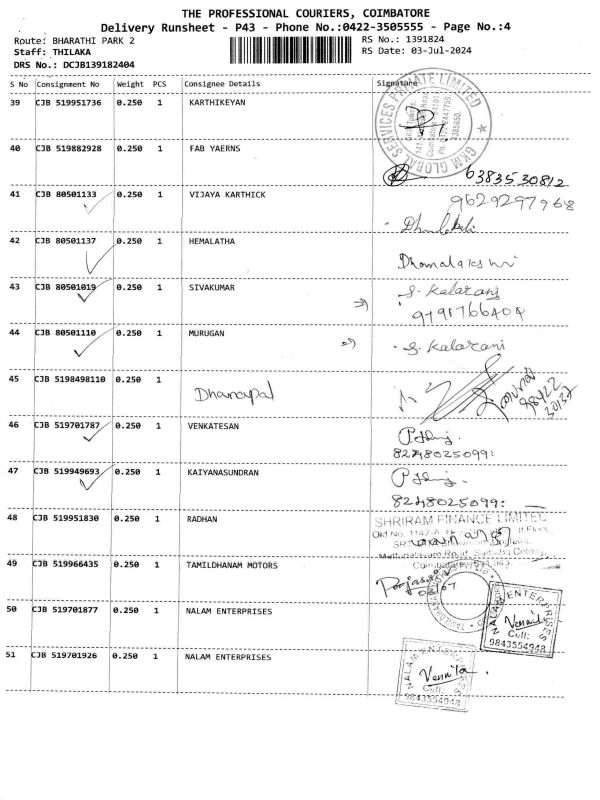 THE PROFESSIONAL COURIERS, COIMBATORE
Delivery Runsheet - P43 - Phone No.:0422-3505555 - Page No.:4
Route: BHARATHI PARK 2 RS No.: 1391824
Staff: THILAKA RS Date: 03-Jul-2024
DRS No.: DCJB139182404
S No Consignment No Weight PCS Consignee Details Signature
39 CJB 519951736 0.250 1 KARTHIKEYAN
GKM GLOBAL SERVICES PRIVATE LIMITED
40 CJB 519882928 0.250 1 FAB YAERNS 6383530812
41 CJB 80501133 0.250 1 VIJAYA KARTHICK 9629297968
42 CJB 80501137 0.250 1 HEMALATHA
43 CJB 80501019 0.250 1 SIVAKUMAR
9791766404
44 CJB 80501110 0.250 1 MURUGAN S. Kalarani
45 CJB 5198498110 0.250 1 Dhanapal
46 CJB 519701787 0.250 1 VENKATESAN
8248025099:
47 CJB 519949693 0.250 1 KAIYANASUNDRAN
8248025099:
48 CJB 519951830 0.250 1 RADHAN SHRIRAM FINANCE LIMITED
49 CJB 519966435 0.250 1 TAMILDHANAM MOTORS
03/07
50 CJB 519701877 0.250 1 NALAM ENTERPRISES
NALAM ENTERPRISES
Cell:
9843554948
51 CJB 519701926 0.250 1 NALAM ENTERPRISES
NALAM ENTERPRISES
Cell:
9843554948